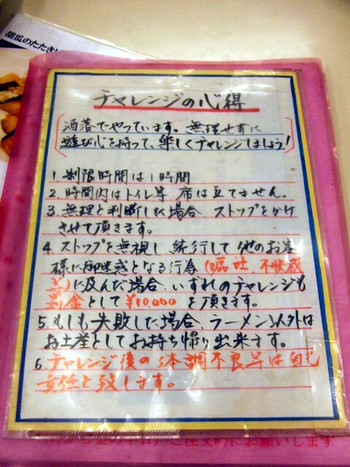 胡瓜のたたき
チャレンジの心得
洒落でやっています。無理せずに
遊び心を持って、楽しくチャレンジしましょう!
1. 制限時間は1時間
2. 時間内はトイレ等 席は立てません。
3. 無理と判断した場合 ストップをかけ
させて頂きます。
4. ストップを無視し 続行して他のお客
様に御迷惑となる行為(嘔吐、不快感
等)に及んだ場合、いずれのチャレンジも
罰金として¥10,000を頂きます。
5. もしも失敗した場合、ラーメン以外は
お土産としてお持ち帰り出来ます。
6. チャレンジ後の体調不良等は自己
責任と致します。
ご注文時にお願いします